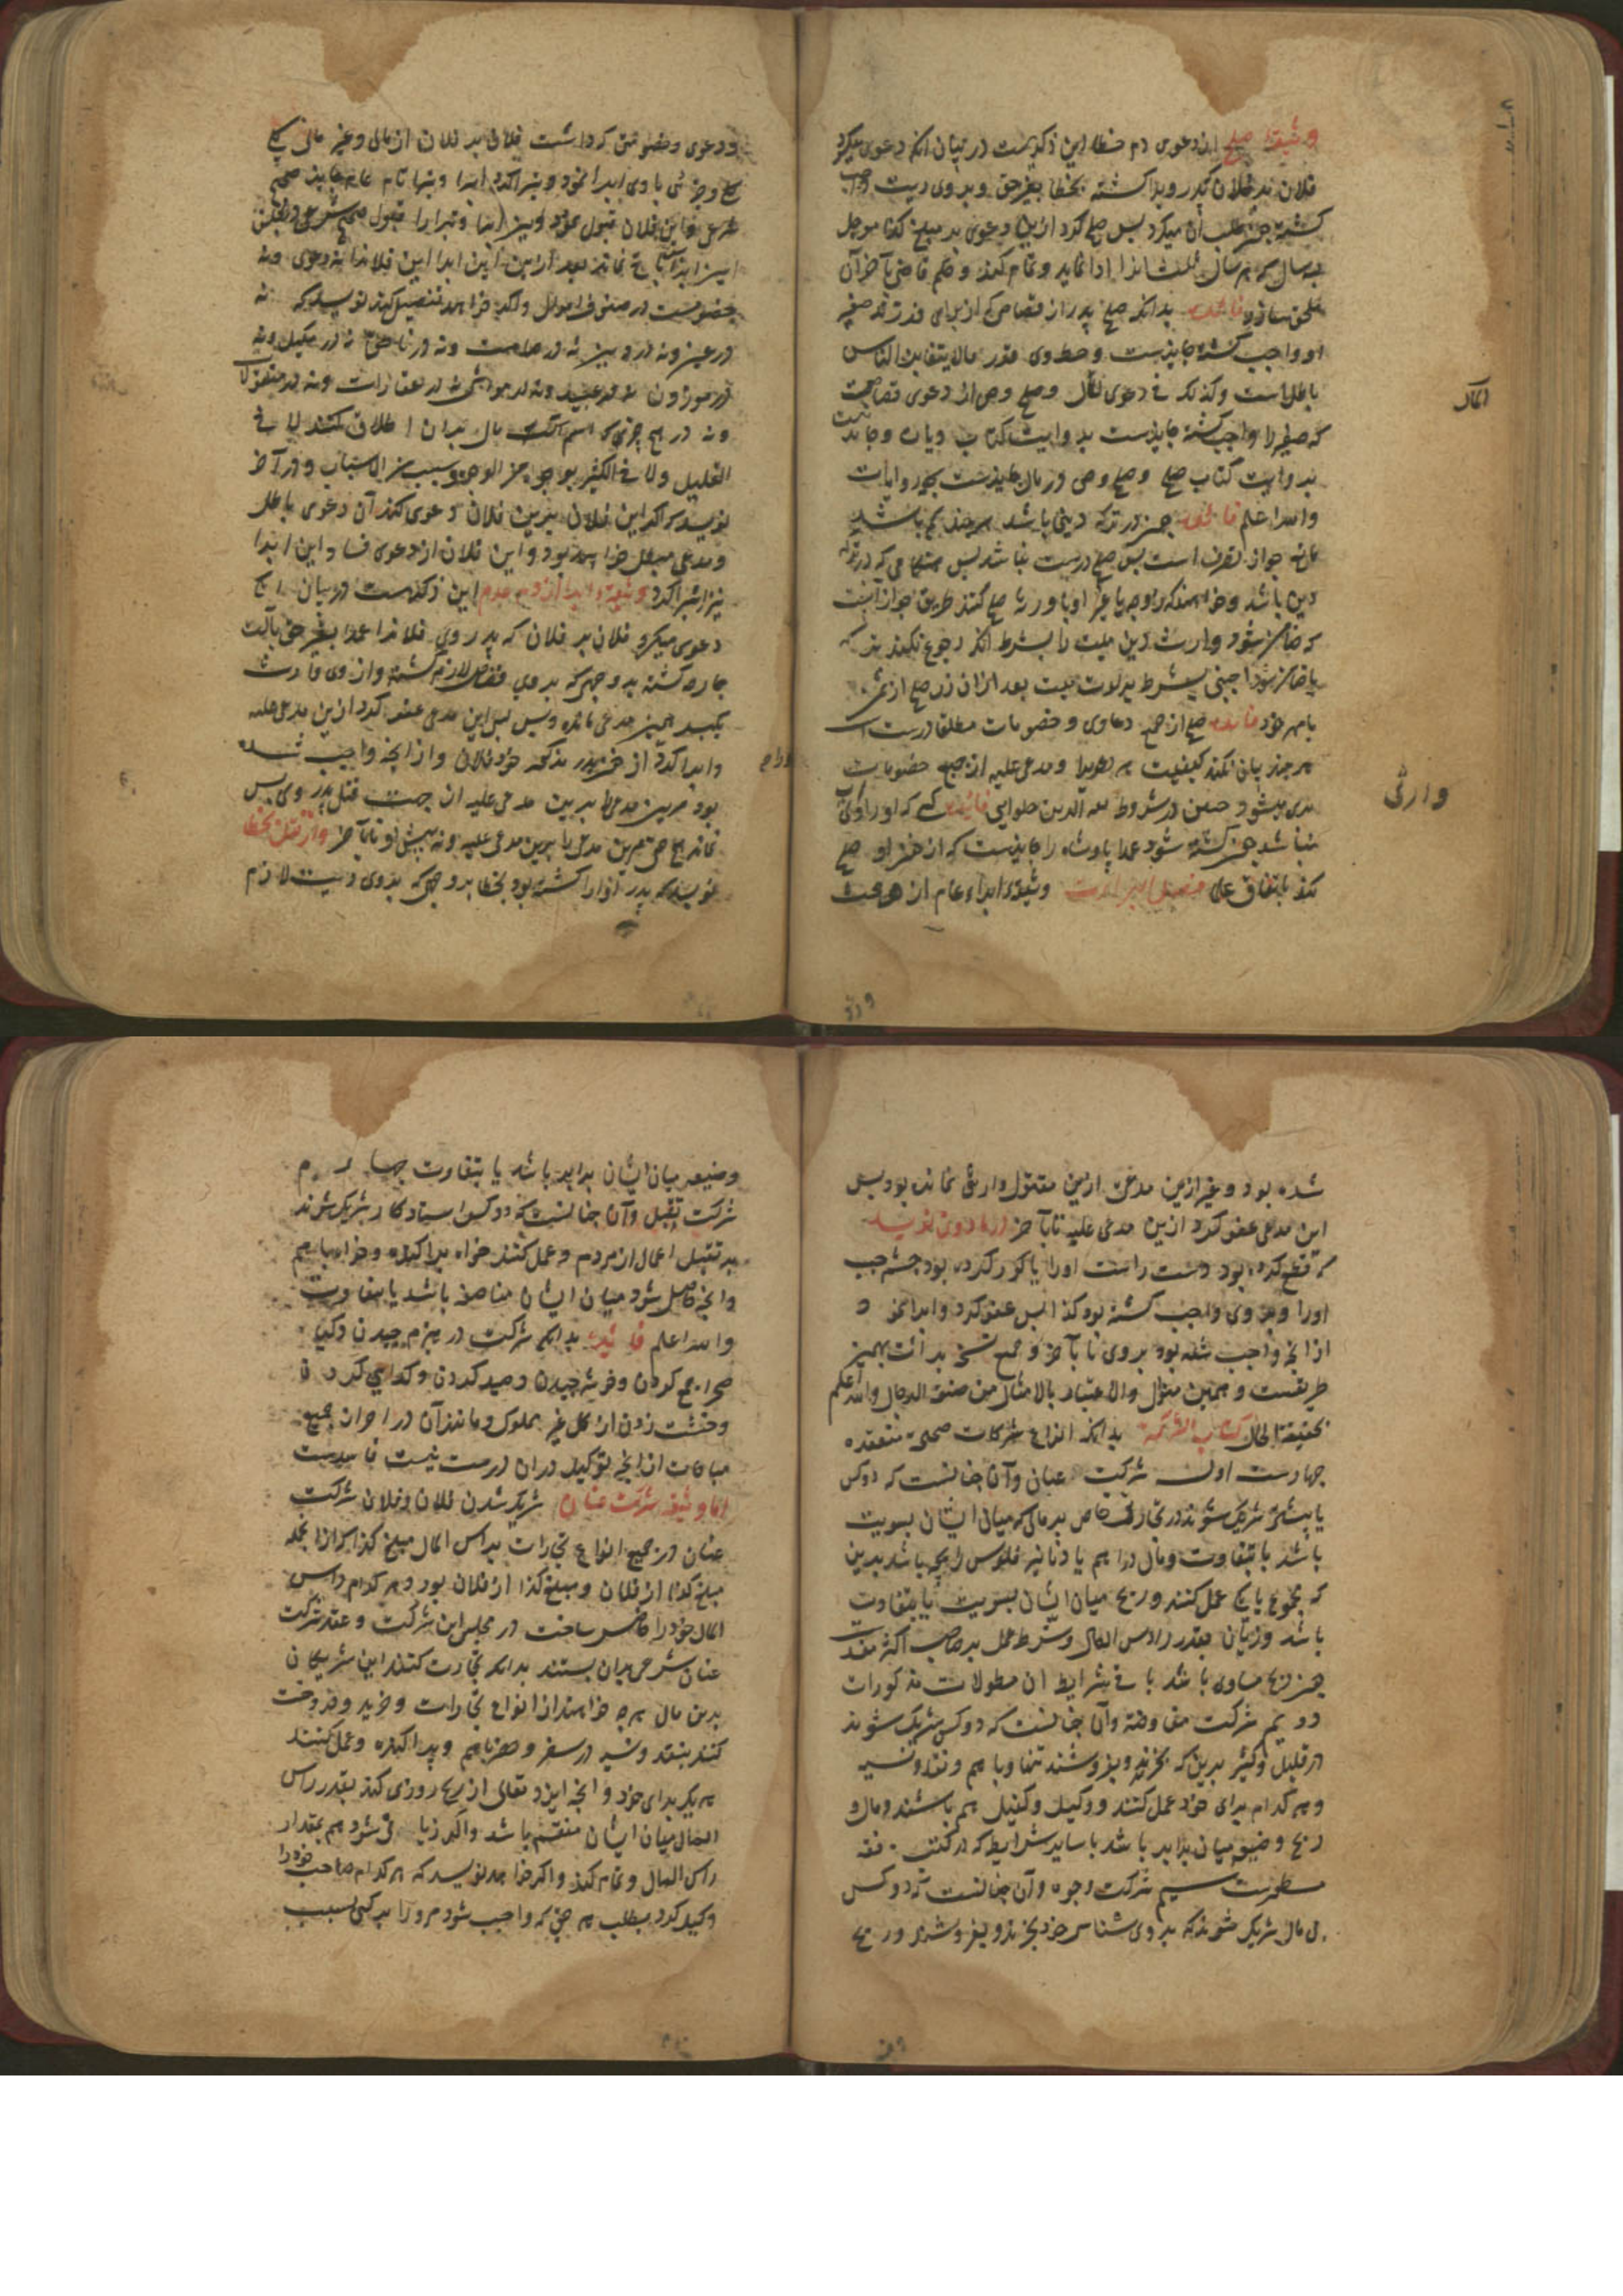 وثیقهٔ صلح از دعوی دم خطا این ذکریست در بیان آنکه دعوی میکرد
فلان بر فلان که پدر ویرا کشته بخطا بغیر حق و بر وی دیت واجب
کشته طلب آن میکرد پس صلح کرد ازین دعوی بر مبلغ کذا موجل
بسه سال که هر سال ثلث اورا ادا نماید و تمام کند و حکم قاضی بآخر آن
ملحق سازد فائده بدانکه صلح پدر از قصاصی که از برای فرزند صغیر
او واجب کشته جایزست و حط وی قدر مالا یتغابن الناس
باطل است وکذلک فی دعوی المال و صلح وصی از دعوی قصاصیست
که صغیر را واجب کشته جایزست بروایت کتاب دیات و جایز نیست
بروایت کتاب صلح و صلح وصی در مال جایزست بهمه روایات
والله اعلم فائده چون در ترکه دینی باشد هر چند کم باشد
مانع جواز تصرف است پس صلح درست نباشد پس هنکامی که در ترکه
دین باشد و خواهند که زوجه یا غیر او با ورثه صلح کنند طریق جواز آنست
که ضامن شود وارث دین میت را بشرط آنکه رجوع نکند بترکه
یا ضامن شود اجنبی بشرط براءت میت بعد ازان زن صلح از ثمن
با مهر خود فائده صلح از جمیع دعاوی و خصومات مطلقا درست است
هر چند بیان نکند کیفیت هر دعوی را و مدعی علیه از جمیع خصومات
بری میشود فائده کسی که او را ولی
نباشد چون کشته شود عمدا پادشاه را جایزست که از خون او صلح
کند باتفاق علما وثیقهٔ ابراء عام از هر حق
المال
وارثی
و دعوی و خصومتی که داشت فلان بر فلان از مالی و غیر مالی کلی
شرعی و این فلان قبول نمود این ابرا و تبرا را قبول صحیح شرعی
خصومت در صنفی از اموال و اکر خواهد تفصیل کند نویسد که نه
در عین و نه در دین نه در صامت و نه در ناطق نه در مکیل و نه
در موزون نه در عبید و نه در مواشی نه در عقارات و نه در منقولات
و نه در هیچ چیزی که اسم مال بر آن اطلاق کنند لا فی
القلیل ولا فی الکثیر بوجه من الوجوه و سبب من الاسباب و در آخر
نویسد که اکر این فلان برین فلان دعوی کند آن دعوی باطل
و مدعی مبطل خواهد بود و این فلان از دعوی
وثیقهٔ ابرا از دم عمد این ذکریست در بیان آنکه
دعوی میکرد فلان بر فلان که پدر وی فلانرا عمدا بغیر حق بآلت
جارحه کشته بر وجهی که بر وی قصاص لازم کشته و از وی وارث
بغیر همین مدعی نمانده پس این مدعی عفو کرد ازین مدعی علیه
و ابرا کرد از خون پدر مذکور خود فلان و از آنچه واجب شده
بود مرین مدعی را برین مدعی علیه از جهت قتل پدر وی پس
نماند هیچ حق مرین مدعی را برین مدعی علیه تا بآخر و از قتل بخطا
نویسد که پدر او را کشته بود بخطا بر وجهی که بر وی دیت لازم
شده بود و بغیر ازین مدعی ازین مقتول وارثی نمانده بود پس
این مدعی عفو کرد ازین مدعی علیه تا بآخر و در ما دون نویسد
که قطع کرده بود دست راست او را یا کور کرده بود چشم چپ
او را و بر وی واجب کشته بود کذا پس عفو کرد و ابرا نمود
از آنچه واجب شده بود بر وی تا بآخر و جمیع نسخ براءت بهمین
طریقست و بهمین منوال والاعتبار بالامثال من صنعة الرجال والله اعلم
بحقیقة الحال کتاب الشرکة بدانکه انواع شرکات صحیحه منعقده
چهارست اول شرکت عنان و آن چنانست که دو کس
یا بیشتر شریک شوند در تجارتی خاص بر مالی که میان ایشان بسویت
باشد یا بتفاوت و مال دراهم یا دنانیر یا فلوس رایجه باشد برین
که مجموع یا یکی عمل کنند و ربح میان ایشان بسویت یا بتفاوت
باشد و زیان بقدر راس المال و شرط عمل بر صاحب اکثر مفسدست
چون ربح مساوی باشد باقی شرایط آن مطولات مذکورات
دویم شرکت مفاوضه و آن چنانست که دو کس شریک شوند
در قلیل و کثیر برین که بخرند و بفروشند تنها و با هم و نقد و نسیه
و هر کدام برای خود عمل کنند و وکیل و کفیل هم باشند و مال و
ربح و وضیعه میان برابر باشد با سایر شرایط که در کتب فقه
مسطورست سیم شرکت وجوه و آن چنانست که دو کس
بی مال شریک شوند که بروی شناسی خود بخرند و بفروشند و ربح
و وضیعه میان ایشان برابر باشد یا بتفاوت چهارم
شرکت تقبل و آن چنانست که دو کس استاد کار شریک شوند
بر تقبل اعمال از مردم و عمل کنند خواه پراکنده و خواه با هم
و آنچه حاصل شود میان ایشان مناصفه باشد یا بتفاوت
والله اعلم فائده بدانکه شرکت در هیزم چیدن و کیاه
صحرا جمع کردن و خوشه چیدن و صید کردن و کدایی کردن
و خشت زدن از کل غیر مملوک و مانند آن در احراز جمیع
مباحات از آنچه توکیل در آن درست نیست فاسدست
اما وثیقهٔ شرکت عنان شریک شدن فلان و فلان شرکت
عنان در جمیع انواع تجارات براس المال مبلغ کذا که از آنجمله
مبلغ کذا از فلان و مبلغ کذا از فلان بود و هر کدام راس
المال خود را حاضر ساخت در مجلس این شرکت و عقد شرکت
عنان شرعی بران بستند بدانکه تجارت کنند این شریکان
بدین مال هر چه خواهند از انواع تجارات و خرید و فروخت
کنند بنقد و نسیه در سفر و حضر با هم و پراکنده و عمل کنند
هر یک برای خود و آنچه ایزد تعالی از ربح روزی کند بقدر راس
المال میان ایشان منقسم باشد و اکر زیانی شود هم بمقدار
راس المال و تمام کند و اکر خواهد نویسد که هر کدام صاحب خود را
وکیل کرد بطلب هر حقی که واجب شود مر او را بر کسی بسبب